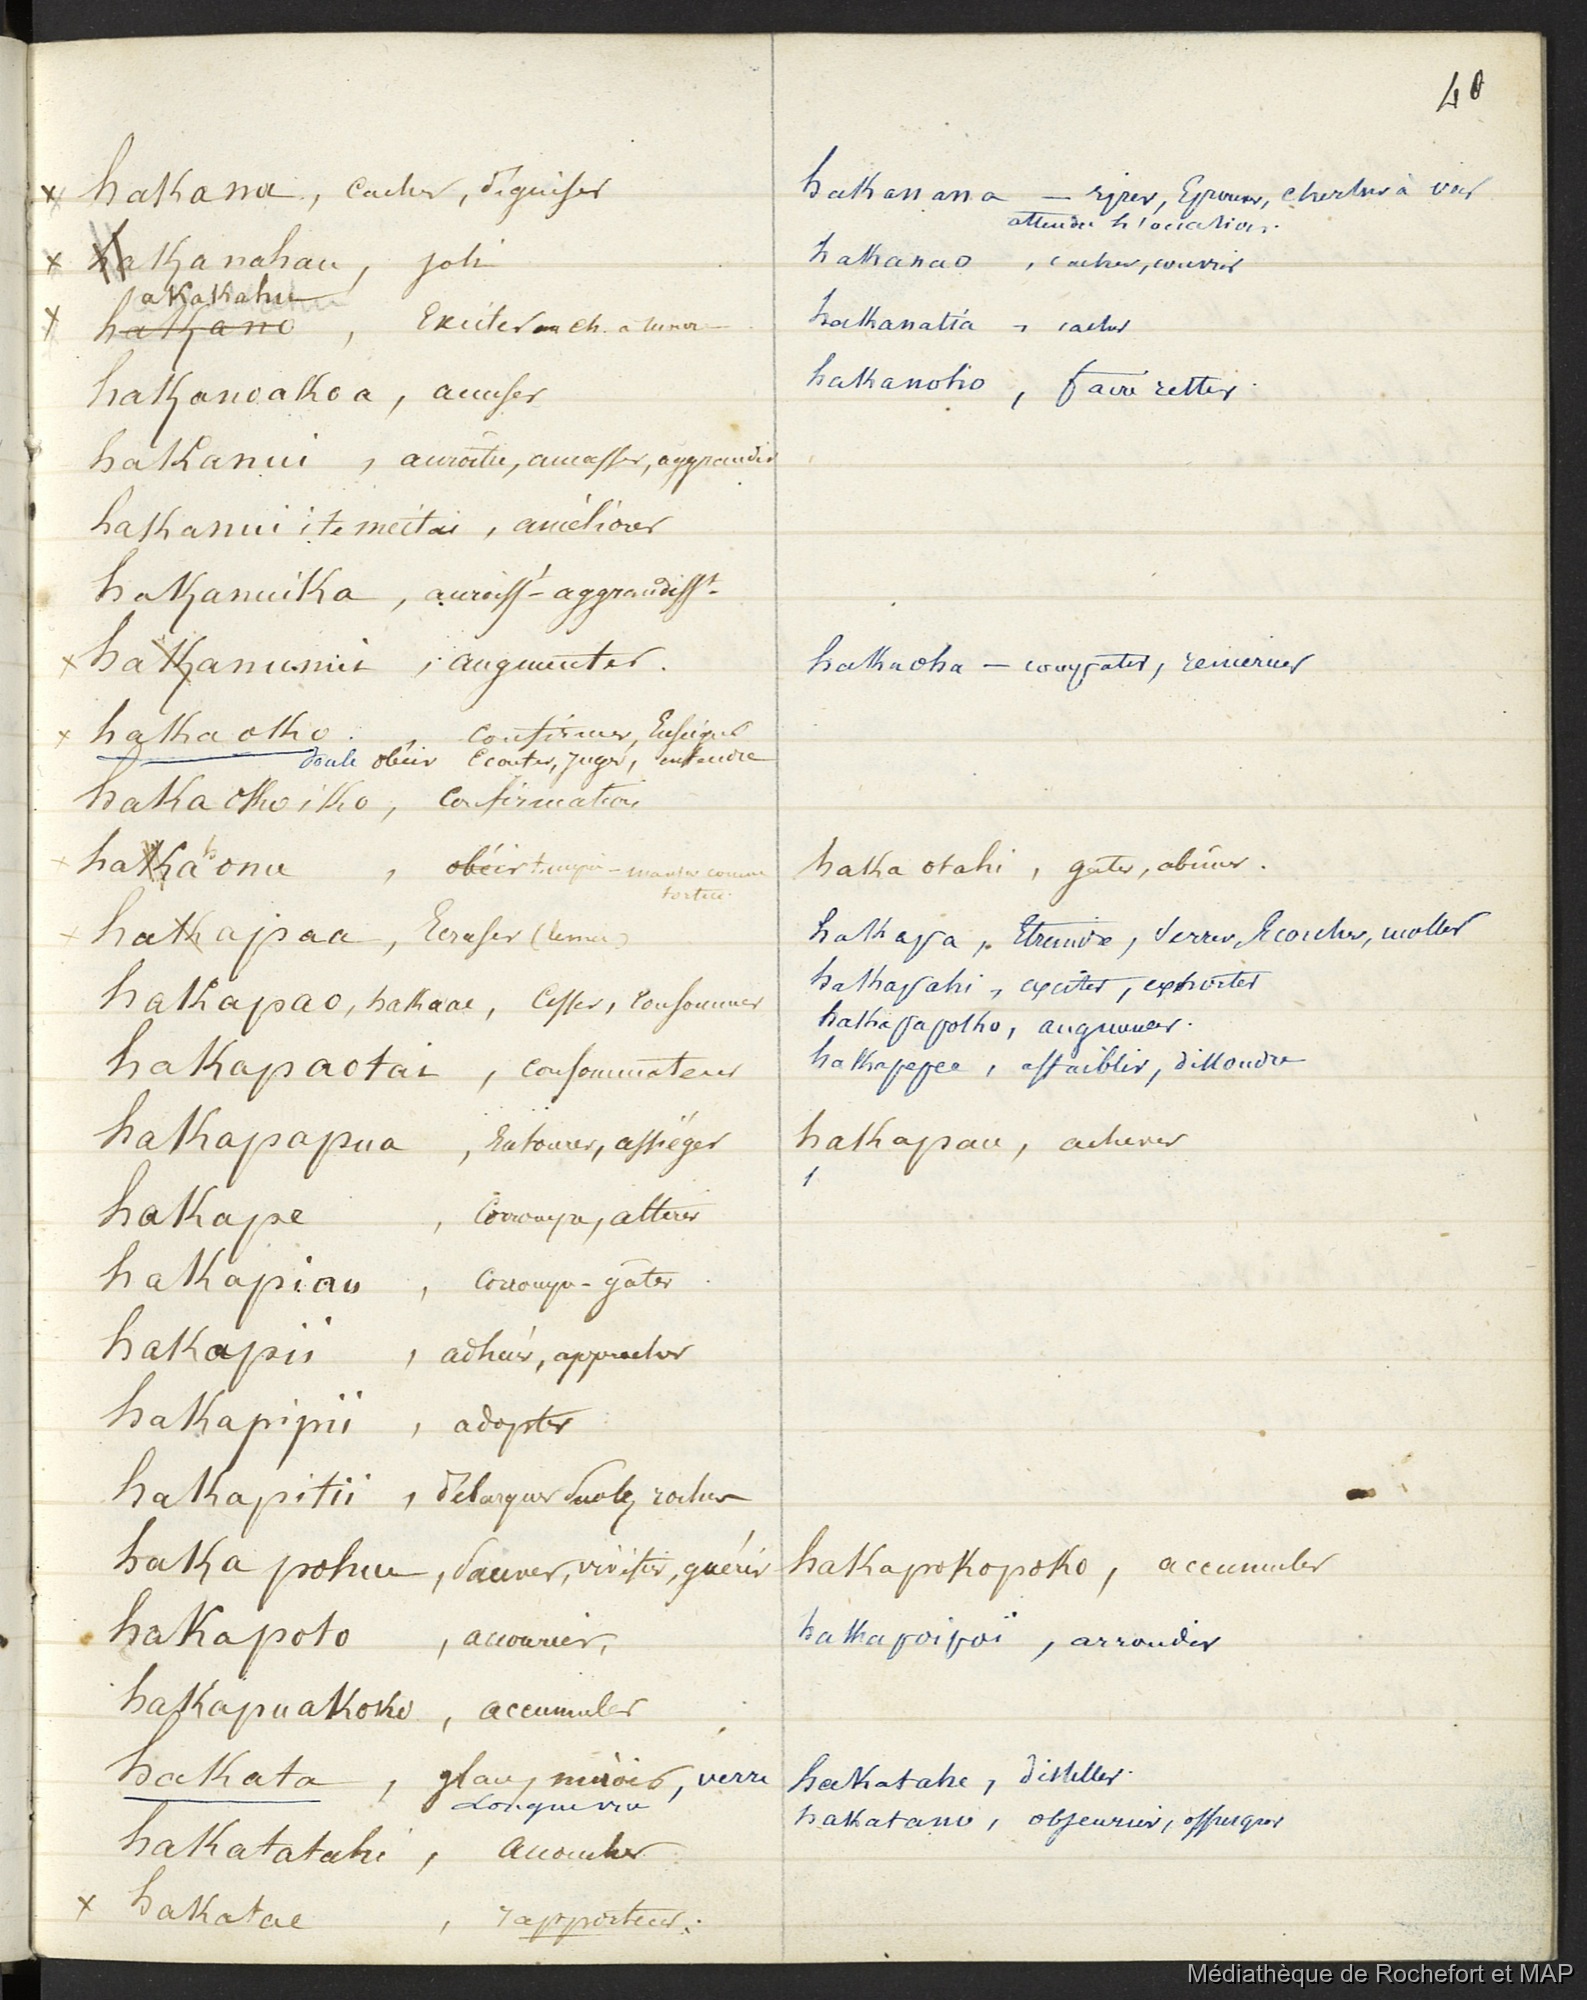 40
x hakana, cacher, déguiser
x hakanahau, joli
akakahu
x hakano, Exciter
hakanoakoa, amuser
hakanui, accroître, amasser, aggrandir
hakanui i te meitai, améliorer
hakanuika, accroisst - aggrandisst
x hakanunui, augmenter.
x hakaoko, confirmer, Enseigner
obéir Ecouter, juger, entendre
hakaokoiko, confirmation
x hakáhonu, obéir marcher comme
tortue
x hakapaa, Ecraser
hakapao, hakaae, Cesser, Consommer
hakapaotai, consommateur
hakapapua, Entourer, assiéger
hakape, Corrompre, altérer
hakapiau, Corrompre - gâter
hakapii, adhérer, approcher
hakapipii, adopter
hakapitii, rocher
haka pohue, Sauver, visiter, guérir
hakapoto, accourcir,
hakapuakoko, accumuler
hakata, glace, miroir, verre
Longue vue
hakatatahi, accoucher
x hakatae, rapporteur.
hakanana - Epouver, chercher à voir
attendre l'occasion.
hakanao, cacher, couvrir
hakanatia, cacher
hakanoho, faire rester.
hakaoha - remercier
haka otahi, gâter, abîmer.
hakapa, Etreindre, Serrer, Ecorcher,
hakapahi, exciter, exhorter
hakapapoko,
hakapepee, affaiblir, dissoudre
hakapau, achever
hakapokopoko, accumuler
hakapoipoi, arrondir
hakatahe, distiller.
hakatano, obscurcir, offusquer
Médiathèque de Rochefort et MAP